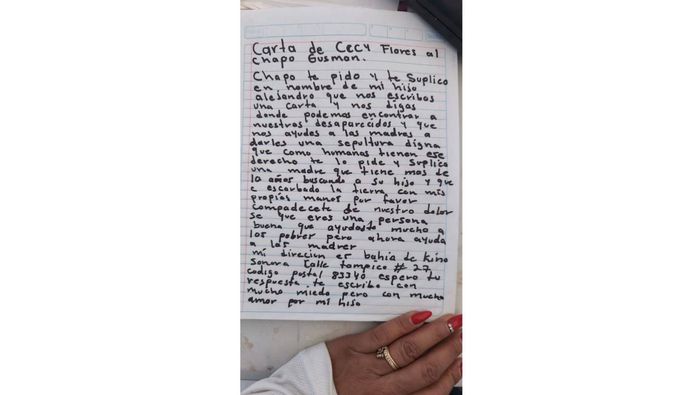 Carta de Cecy Flores al
Chapo Gusman.
Chapo te pido y te Suplico
en nombre de mi hiso
alesandro que nos escribas
una carta y nos digas
donde podemos encontrar a
nuestros desaparecidos y que
nos ayudes a las madres a
darles una sepultura digna
que como humanos tienen ese
derecho te lo pide y suplica
una madre que tiene mas de
la años buscando a su hiso y que
e escarbado la tierra con mis
propias manos por favor
compadecete de nuestro dolor
se que eros una persona
buena que ayudaste mucho a
los pobrer pero ahora ayuda
a las madrer
mi direcion es bahia de kino
Sonora Calle tampico # 27
codigo postal 83340 espero tu
respuesta te escribo con
mucho miedo pero con mucho
amor por mi hiso